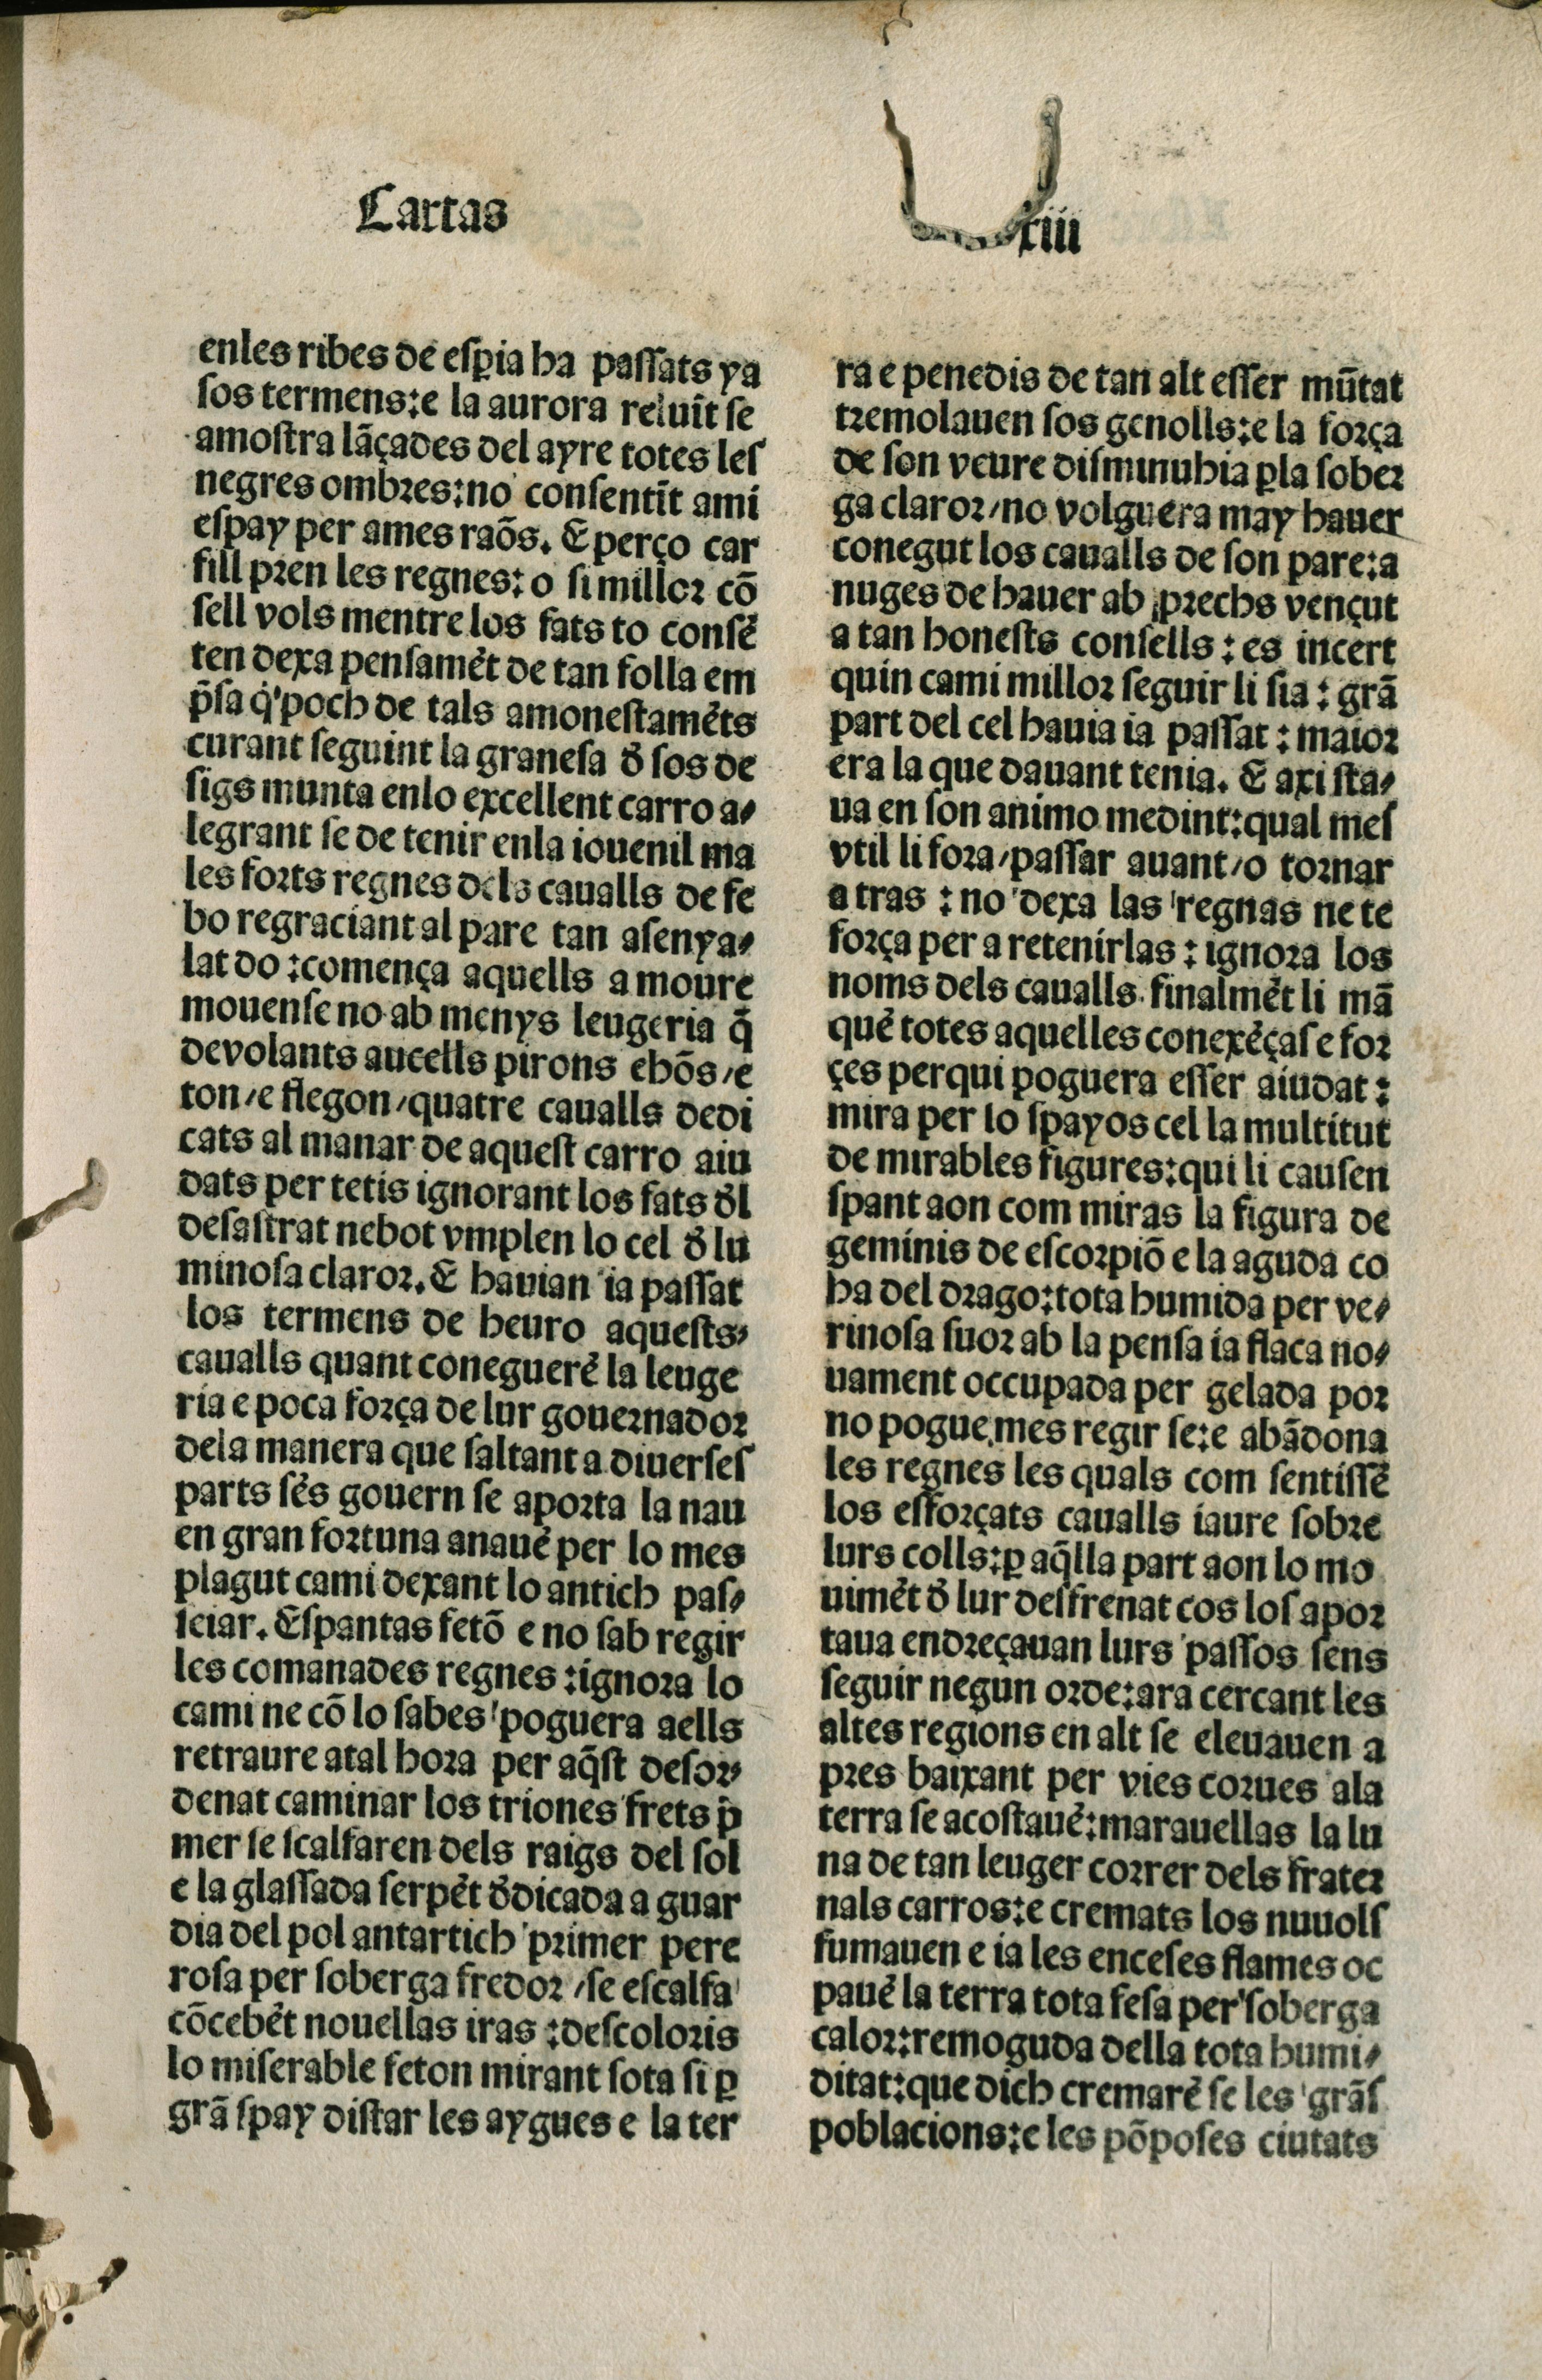 Cartas
xiii
enles ribes de eſꝑia ha paſſats ya
ſos termens:e la aurora reluīt ſe
amoſtra lāçades del ayre totes leſ
negres ombres:no conſentīt ami
eſpay per ames raōs. E perço car
fill pren les regnes: o ſi millor cō
ſell vols mentre los fats to conſē
ten dexa penſamēt de tan folla em
p̄ſa q̇ poch de tals amoneſtamēts
curant ſeguint la graneſa ð ſos de
ſigs munta enlo excellent carro a⸗
legrant ſe de tenir enla iouenil ma
les forts regnes dels caualls de fe
bo regraciant al pare tan aſenya⸗
lat do:comença aquells a moure
mouenſe no ab menys leugeria q̄
devolants aucells pirons ehōs/e
ton/e flegon/quatre caualls dedi
cats al manar de aqueſt carro aiu
dats per tetis ignorant los fats ðl
deſaſtrat nebot vmplen lo cel ð lu
minoſa claror. E hauian ia paſſat
los termens de heuro aqueſts
caualls quant coneguerē la leuge
ria e poca força de lur gouernador
dela manera que ſaltant a diuerſeſ
parts ſēs gouern ſe aporta la nau
en gran fortuna anauē per lo mes
plagut cami dexant lo antich paſ⸗
ſeiar. Eſpantas fetō e no ſab regir
les comanades regnes:ignora lo
cami ne cō lo ſabes poguera aells
retraure atal hora per aq̄ſt deſor⸗
denat caminar los triones frets p̄
mer ſe ſcalfaren dels raigs del ſol
e la glaſſada ſerpēt ðdicada a guar
dia del pol antartich primer pere
roſa per ſoberga fredor/ſe eſcalfa
cōcebēt nouellas iras:deſcoloris
lo miſerable feton mirant ſota ſi ꝑ
grā ſpay diſtar les aygues e la ter
ra e penedis de tan alt eſſer mūtat
tremolauen ſos genolls:e la força
de ſon veure diſminuhia ꝑla ſober
ga claror/no volguera may hauer
conegut los caualls de ſon pare:a
nuges de hauer ab prechs vençut
a tan honeſts conſells: es incert
quin cami millor ſeguir li ſia: grā
part del cel hauia ia paſſat: maior
era la que dauant tenia. E axi ſta⸗
ua en ſon animo medint:qual meſ
vtil li fora/paſſar auant/o tornar
a tras: no dexa las regnas ne te
força per a retenirlas: ignora los
noms dels caualls finalmēt li mā
quē totes aquelles conexēçaſ e for
çes perqui poguera eſſer aiudat:
mira per lo ſpayos cel la multitut
de mirables figures:qui li cauſen
ſpant aon com miras la figura de
geminis de eſcorpiō e la aguda co
ha del drago:tota humida per ve⸗
rinoſa ſuor ab la penſa ia flaca no⸗
uament occupada per gelada por
no pogue mes regir ſe:e abādona
les regnes les quals com ſentiſſē
los esforçats caualls iaure ſobre
lurs colls:ꝑ aq̄lla part aon lo mo
uimēt ð lur deſfrenat cos loſ apor
taua endreçauan lurs paſſos ſens
ſeguir negun orde:ara cercant les
altes regions en alt ſe eleuauen a
pres baixant per vies corues ala
terra ſe acoſtauē:marauellas la lu
na de tan leuger correr dels frater
nals carros:e cremats los nuuolſ
fumauen e ia les enceſes flames oc
pauē la terra tota feſa per ſoberga
calor:remoguda della tota humi⸗
ditat:que dich cremarē ſe les grāſ
poblacions:e les pōpoſes ciutats